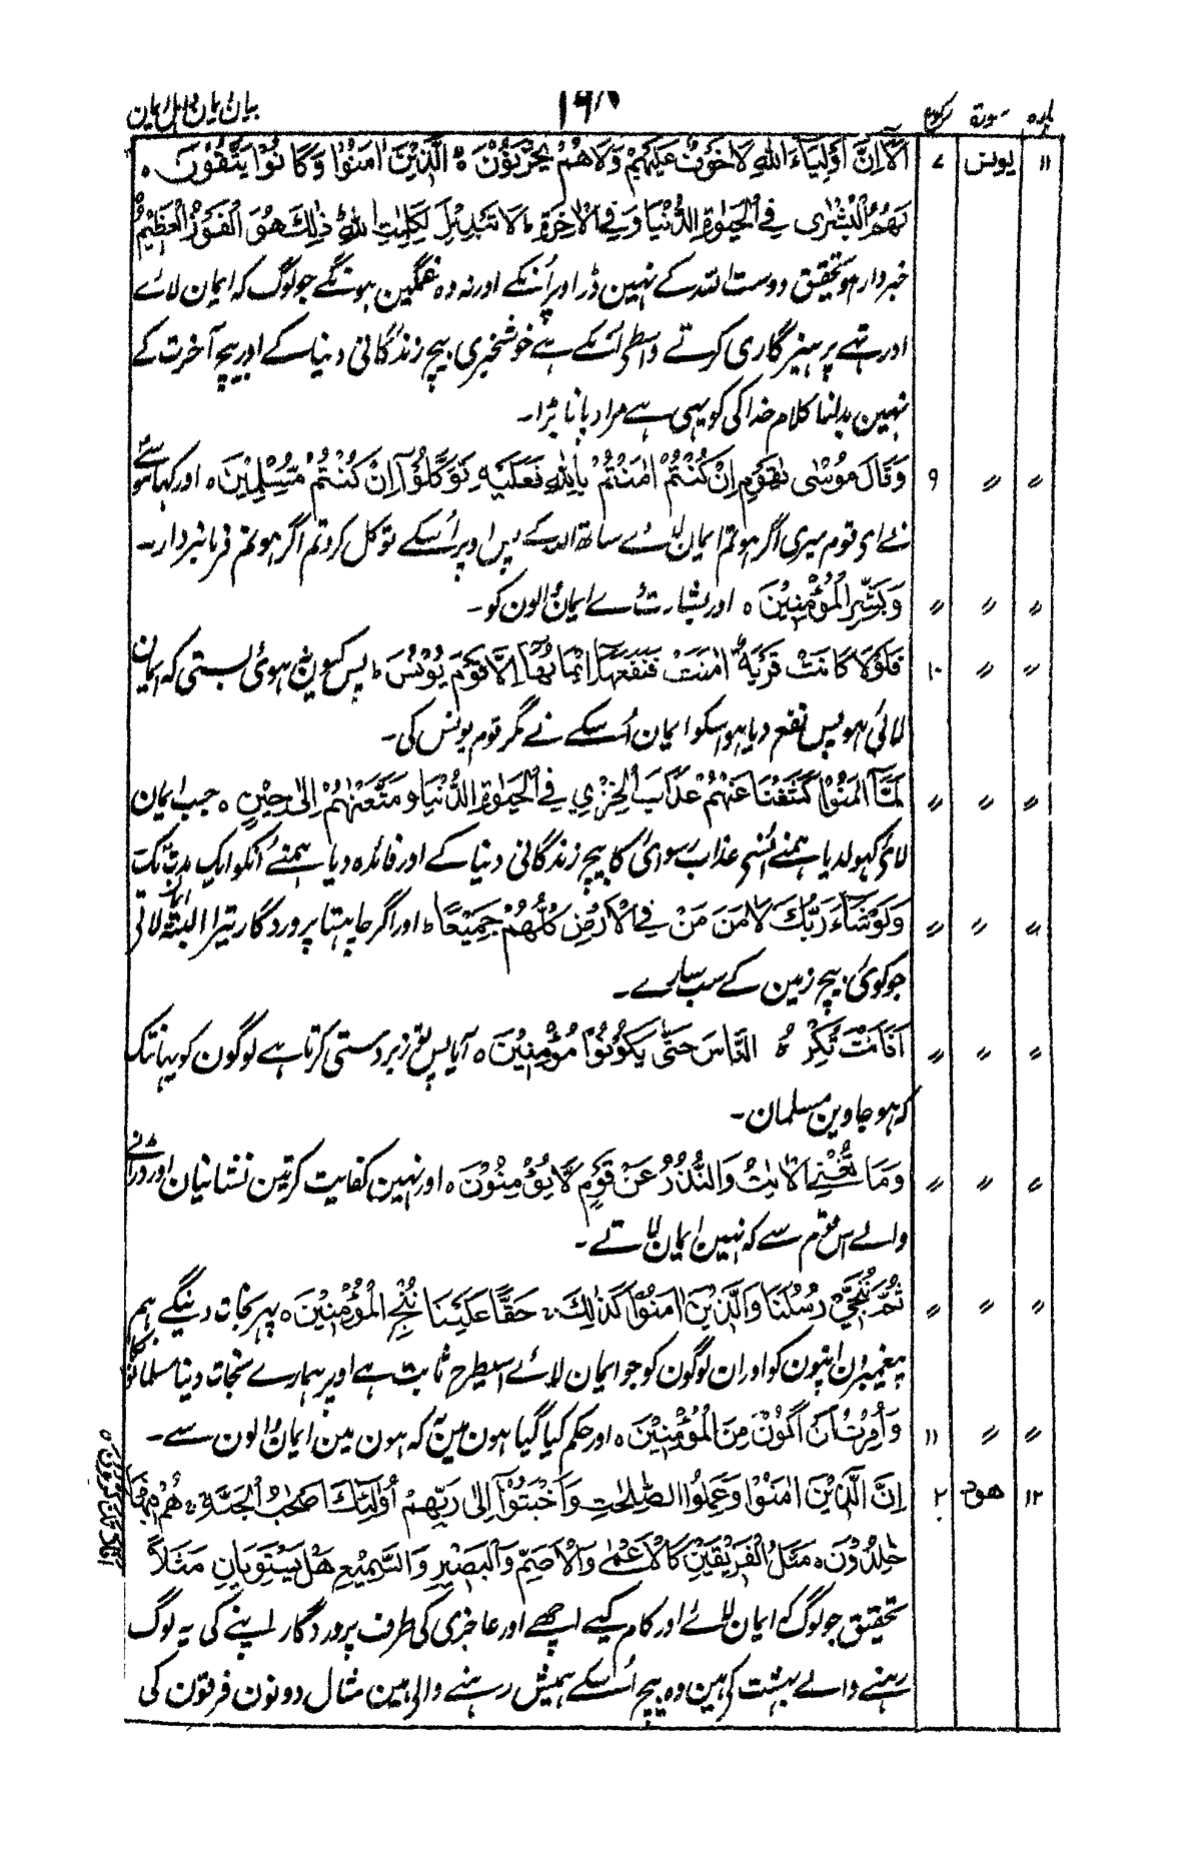 پارہ سورۃ رکوع ۱۶۸ بیان ایمان و اہل ایمان
۱۱ یونس ۷ اَلَآ اِنَّ اَوْلِيَآءَ اللّٰهِ لَاخَوْفٌ عَلَيْهِمْ وَلَاهُمْ يَحْزَنُوْنَ ۃ الَّذِيْنَ اٰمَنُوْا وَكَانُوْا يَتَّقُوْنَ ہ
لَهُمُ الْبُشْرٰى فِي الْحَيٰوةِ الدُّنْيَا وَفِي الْاٰخِرَةِ ، لَا تَبْدِيْلَ لِكَلِمٰتِ اللّٰهِ ذٰلِكَ هُوَ الْفَوْزُ الْعَظِيْمُ
خبردار ہو تحقیق دوست اللہ کے نہین ڈر اوپر اُنکے اور نہ وہ غمگین ہونگے جو لوگ کہ ایمان لائے
اور تہے پرہیزگاری کرتے واسطے اُنکے ہے خوشخبری بیچ زندگانی دنیا کے اور بیچ آخرت کے
نہین بدلنا کلام خدا کی کو یہی ہے مراد پانا بڑا۔
〃 〃 ۹ وَقَالَ مُوْسٰى يٰقَوْمِ اِنْ كُنْتُمْ اٰمَنْتُمْ بِاللّٰهِ فَعَلَيْهِ تَوَكَّلُوْٓا اِنْ كُنْتُمْ مُّسْلِمِيْنَ ہ اور کہا موسٰے
نے اے قوم میری اگر ہو تم ایمان لائے ساتھ اللہ کے پس اوپر اُسکے توکل کرو تم اگر ہو تم فرمانبردار۔
〃 〃 〃 وَبَشِّرِ الْمُؤْمِنِيْنَ ہ اور بشارت دے ایمان والون کو۔
〃 〃 ۱۰ فَلَوْلَا كَانَتْ قَرْيَةٌ اٰمَنَتْ فَنَفَعَهَآ اِيْمَانُهَآ اِلَّا قَوْمَ يُوْنُسَ ط پس کیون نہ ہوئی بستی کہ ایمان
لائی ہو پس نفع دیا ہو اسکو ایمان اُسکے نے مگر قوم یونس کی۔
〃 〃 〃 لَمَّآ اٰمَنُوْا كَشَفْنَا عَنْهُمْ عَذَابَ الْخِزْيِ فِي الْحَيٰوةِ الدُّنْيَا وَمَتَّعْنٰهُمْ اِلٰى حِيْنٍ ہ جب ایمان
لائے کہولدیا ہمنے اُنسے عذاب رسوائی کا بیچ زندگانی دنیا کے اور فائدہ دیا ہمنے اُنکو ایک مدت تک
〃 〃 〃 وَلَوْشَآءَ رَبُّكَ لَاٰمَنَ مَنْ فِي الْاَرْضِ كُلُّهُمْ جَمِيْعًا ط اور اگر چاہتا پروردگار تیرا البتہ ایمان لاتے
جو کوئی بیچ زمین کے سب سارے۔
〃 〃 〃 اَفَاَنْتَ تُكْرِهُ النَّاسَ حَتّٰى يَكُوْنُوْا مُؤْمِنِيْنَ ہ آیا پس تو زبردستی کرتا ہے لوگون کو یہانتک
کہ ہو جاوین مسلمان۔
〃 〃 〃 وَمَا تُغْنِي الْاٰيٰتُ وَالنُّذُرُ عَنْ قَوْمٍ لَّا يُؤْمِنُوْنَ ہ اور نہین کفایت کرتین نشانیان اور ڈرانے
والے اس قوم سے کہ نہین ایمان لاتے۔
〃 〃 〃 ثُمَّ نُنَجِّيْ رُسُلَنَا وَالَّذِيْنَ اٰمَنُوْا كَذٰلِكَ ، حَقًّا عَلَيْنَا نُنْجِ الْمُؤْمِنِيْنَ ہ پہر نجات دینگے ہم
پیغمبرون اپنون کو اور ان لوگون کو جو ایمان لائے اسیطرح ثابت ہے اوپر ہمارے نجات دینا مسلمانونکا
〃 〃 ۱۱ وَاُمِرْتُ اَنْ اَكُوْنَ مِنَ الْمُؤْمِنِيْنَ ہ اور حکم کیا گیا ہون مین یہ کہ ہون مین ایمان والون سے۔
۱۲ ھود ۲ اِنَّ الَّذِيْنَ اٰمَنُوْا وَعَمِلُوا الصّٰلِحٰتِ وَاَخْبَتُوْٓا اِلٰى رَبِّهِمْ اُولٰٓئِكَ اَصْحٰبُ الْجَنَّةِ ، هُمْ فِيْهَا
خٰلِدُوْنَ ہ مَثَلُ الْفَرِيْقَيْنِ كَالْاَعْمٰى وَالْاَصَمِّ وَالْبَصِيْرِ وَالسَّمِيْعِ هَلْ يَسْتَوِيٰنِ مَثَلًا
تحقیق جو لوگ کہ ایمان لائے اور کام کیے اچھے اور عاجزی کی طرف پروردگار اپنے کی یہ لوگ
رہنے والے بہشت کے ہین وہ بیچ اُسکے ہمیش رہنے والے ہین مثال دونون فرقون کی